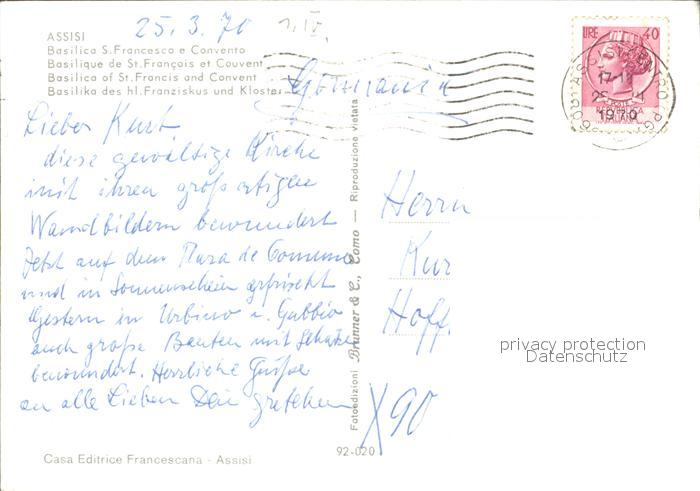 25.3.70
1.IV.
ASSISI
Basilica S. Francesco e Convento
Basilique de St. François et Couvent
Basilica of St. Francis and Convent
Basilika des hl. Franziskus und Kloster
Germania
LIRE 40
1970
Lieber Kurt
diese gewaltige Kirche
mit ihren großartigen
Wandbildern bewundert
Jetzt auf dem Piazza de Comune
und in Sonnenschein erfrischt
Gestern in Urbino u. Gubbio
auch große Bauten mit Schätzen
bewundert. Herrliche Grüße
an alle Lieben Dein Gretchen
Fotoedizioni Brunner & C., Como — Riproduzione vietata
Herrn
Kur
Hoff.
privacy protection
Datenschutz
X90
92-020
Casa Editrice Francescana - Assisi